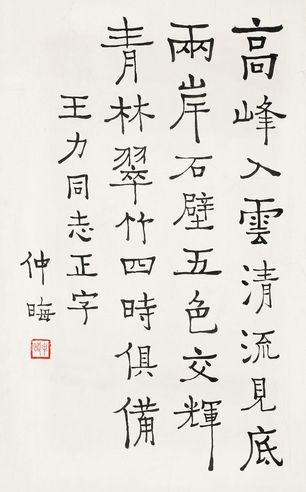 高峰入雲清流見底
兩岸石壁五色交輝
青林翠竹四時俱備
王力同志正字
仲晦